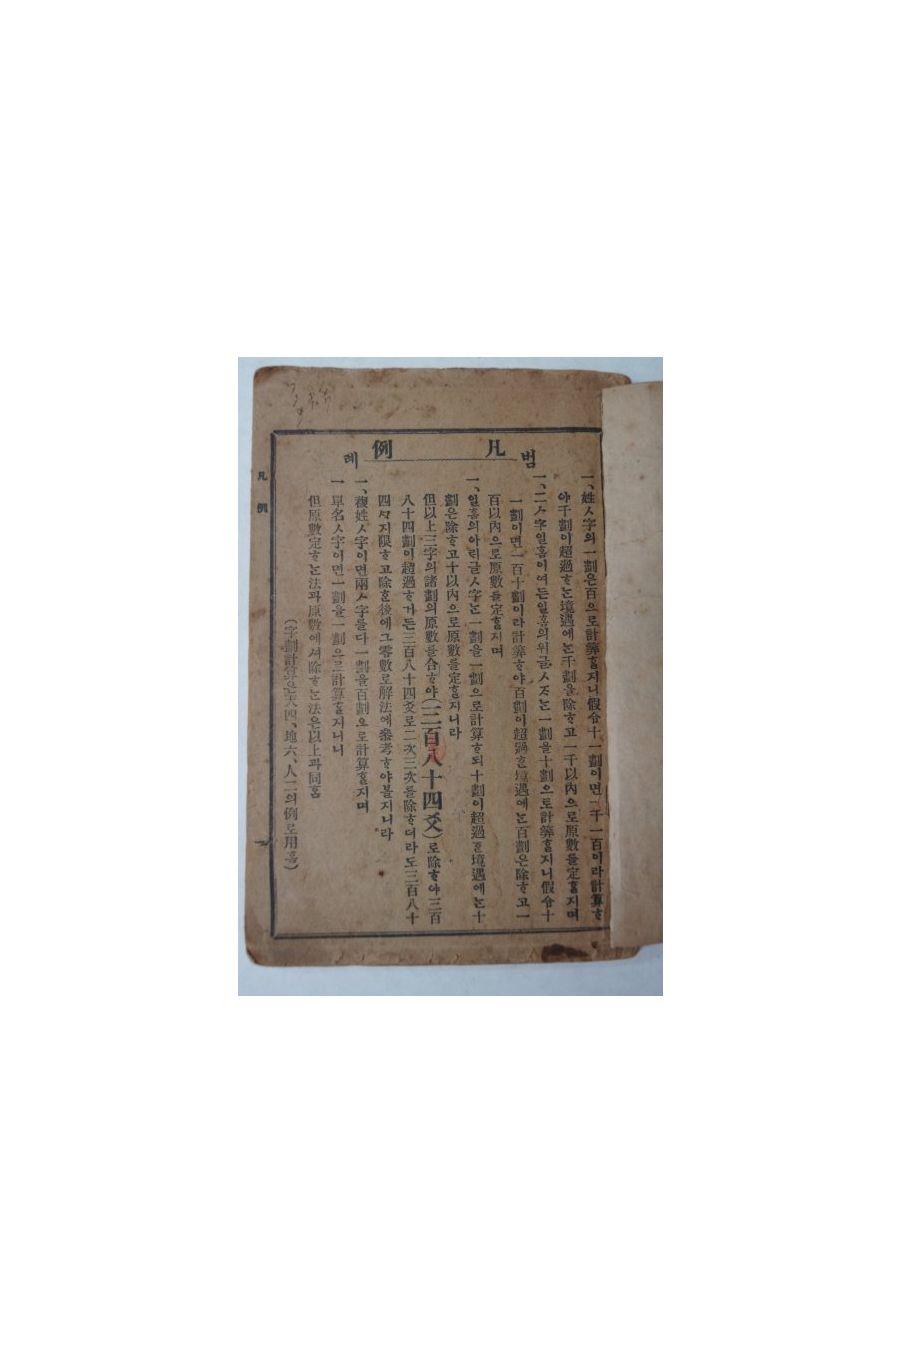 범 凡例 례
一、姓ㅅ字의一劃은百으로計算ᄒᆞᆯ지니假令十一劃이면一千一百이라計算ᄒᆞ
야千劃이超過ᄒᆞᄂᆞᆫ境遇에ᄂᆞᆫ千劃을除ᄒᆞ고一千以內으로原數를定ᄒᆞᆯ지며
一、二ㅅ字일홈이여든일홈의위글ㅅᄌᆞᄂᆞᆫ一劃을十劃으로計算ᄒᆞᆯ지니假令十
一劃이면一百十劃이라計算ᄒᆞ야百劃이超過ᄒᆞᆫ境遇에ᄂᆞᆫ百劃은除ᄒᆞ고一
百以內으로原數를定ᄒᆞᆯ지며
一、일홈의아ᄅᆡ글ㅅ字ᄂᆞᆫ一劃을一劃으로計算ᄒᆞ되十劃이超過ᄒᆞᆫ境遇에ᄂᆞᆫ十
劃은除ᄒᆞ고十以內으로原數를定ᄒᆞᆯ지니라
但以上三字의諸劃의原數를合ᄒᆞ야(三百八十四爻)로除ᄒᆞ야三百
八十四劃이超過ᄒᆞ거든三百八十四爻로二次三次를除ᄒᆞ더라도三百八十
四ᄭᆞ지限ᄒᆞ고除ᄒᆞᆫ後에그零數로解法에參考ᄒᆞ야볼지니라
一、複姓ㅅ字이면兩ㅅ字를다一劃을百劃으로計算ᄒᆞᆯ지며
一 單名ㅅ字이면一劃을一劃으로計算ᄒᆞᆯ지니니
但原數定ᄒᆞᄂᆞᆫ法과原數에셔除ᄒᆞᄂᆞᆫ法은以上과同홈
(字劃計算은天四、地六、人二의例로用홈)
凡例